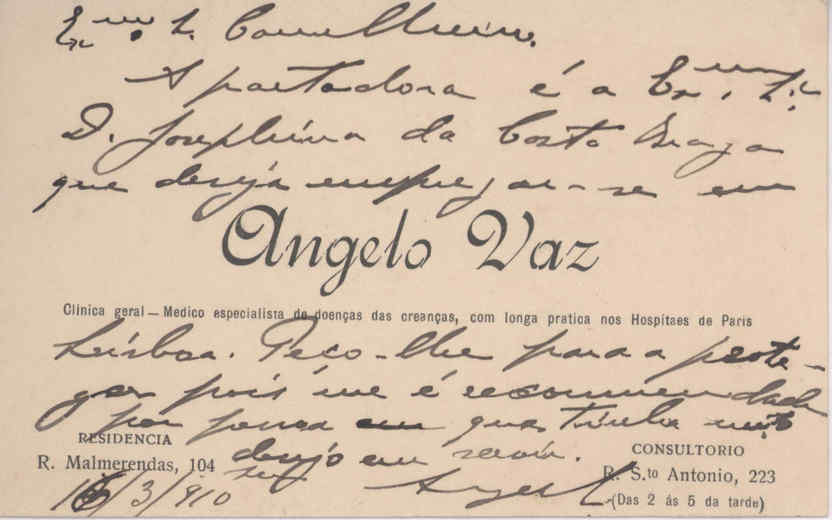 Ex.mo Sr. Conselheiro.
A portadora é a Ex.ma Sr.ª
D. Josephina da Costa Braga
que deseja empregar-se em
Angelo Vaz
Clinica geral — Medico especialista de doenças das creanças, com longa pratica nos Hospitaes de Paris
Lisboa. Peço-lhe para a prote-
ger pois me é recommendada
por pessoa em que tenho muito
desejo em servir.
RESIDENCIA
R. Malmerendas, 104
CONSULTORIO
R. S.to Antonio, 223
(Das 2 ás 5 da tarde)
/3/910
Angelo